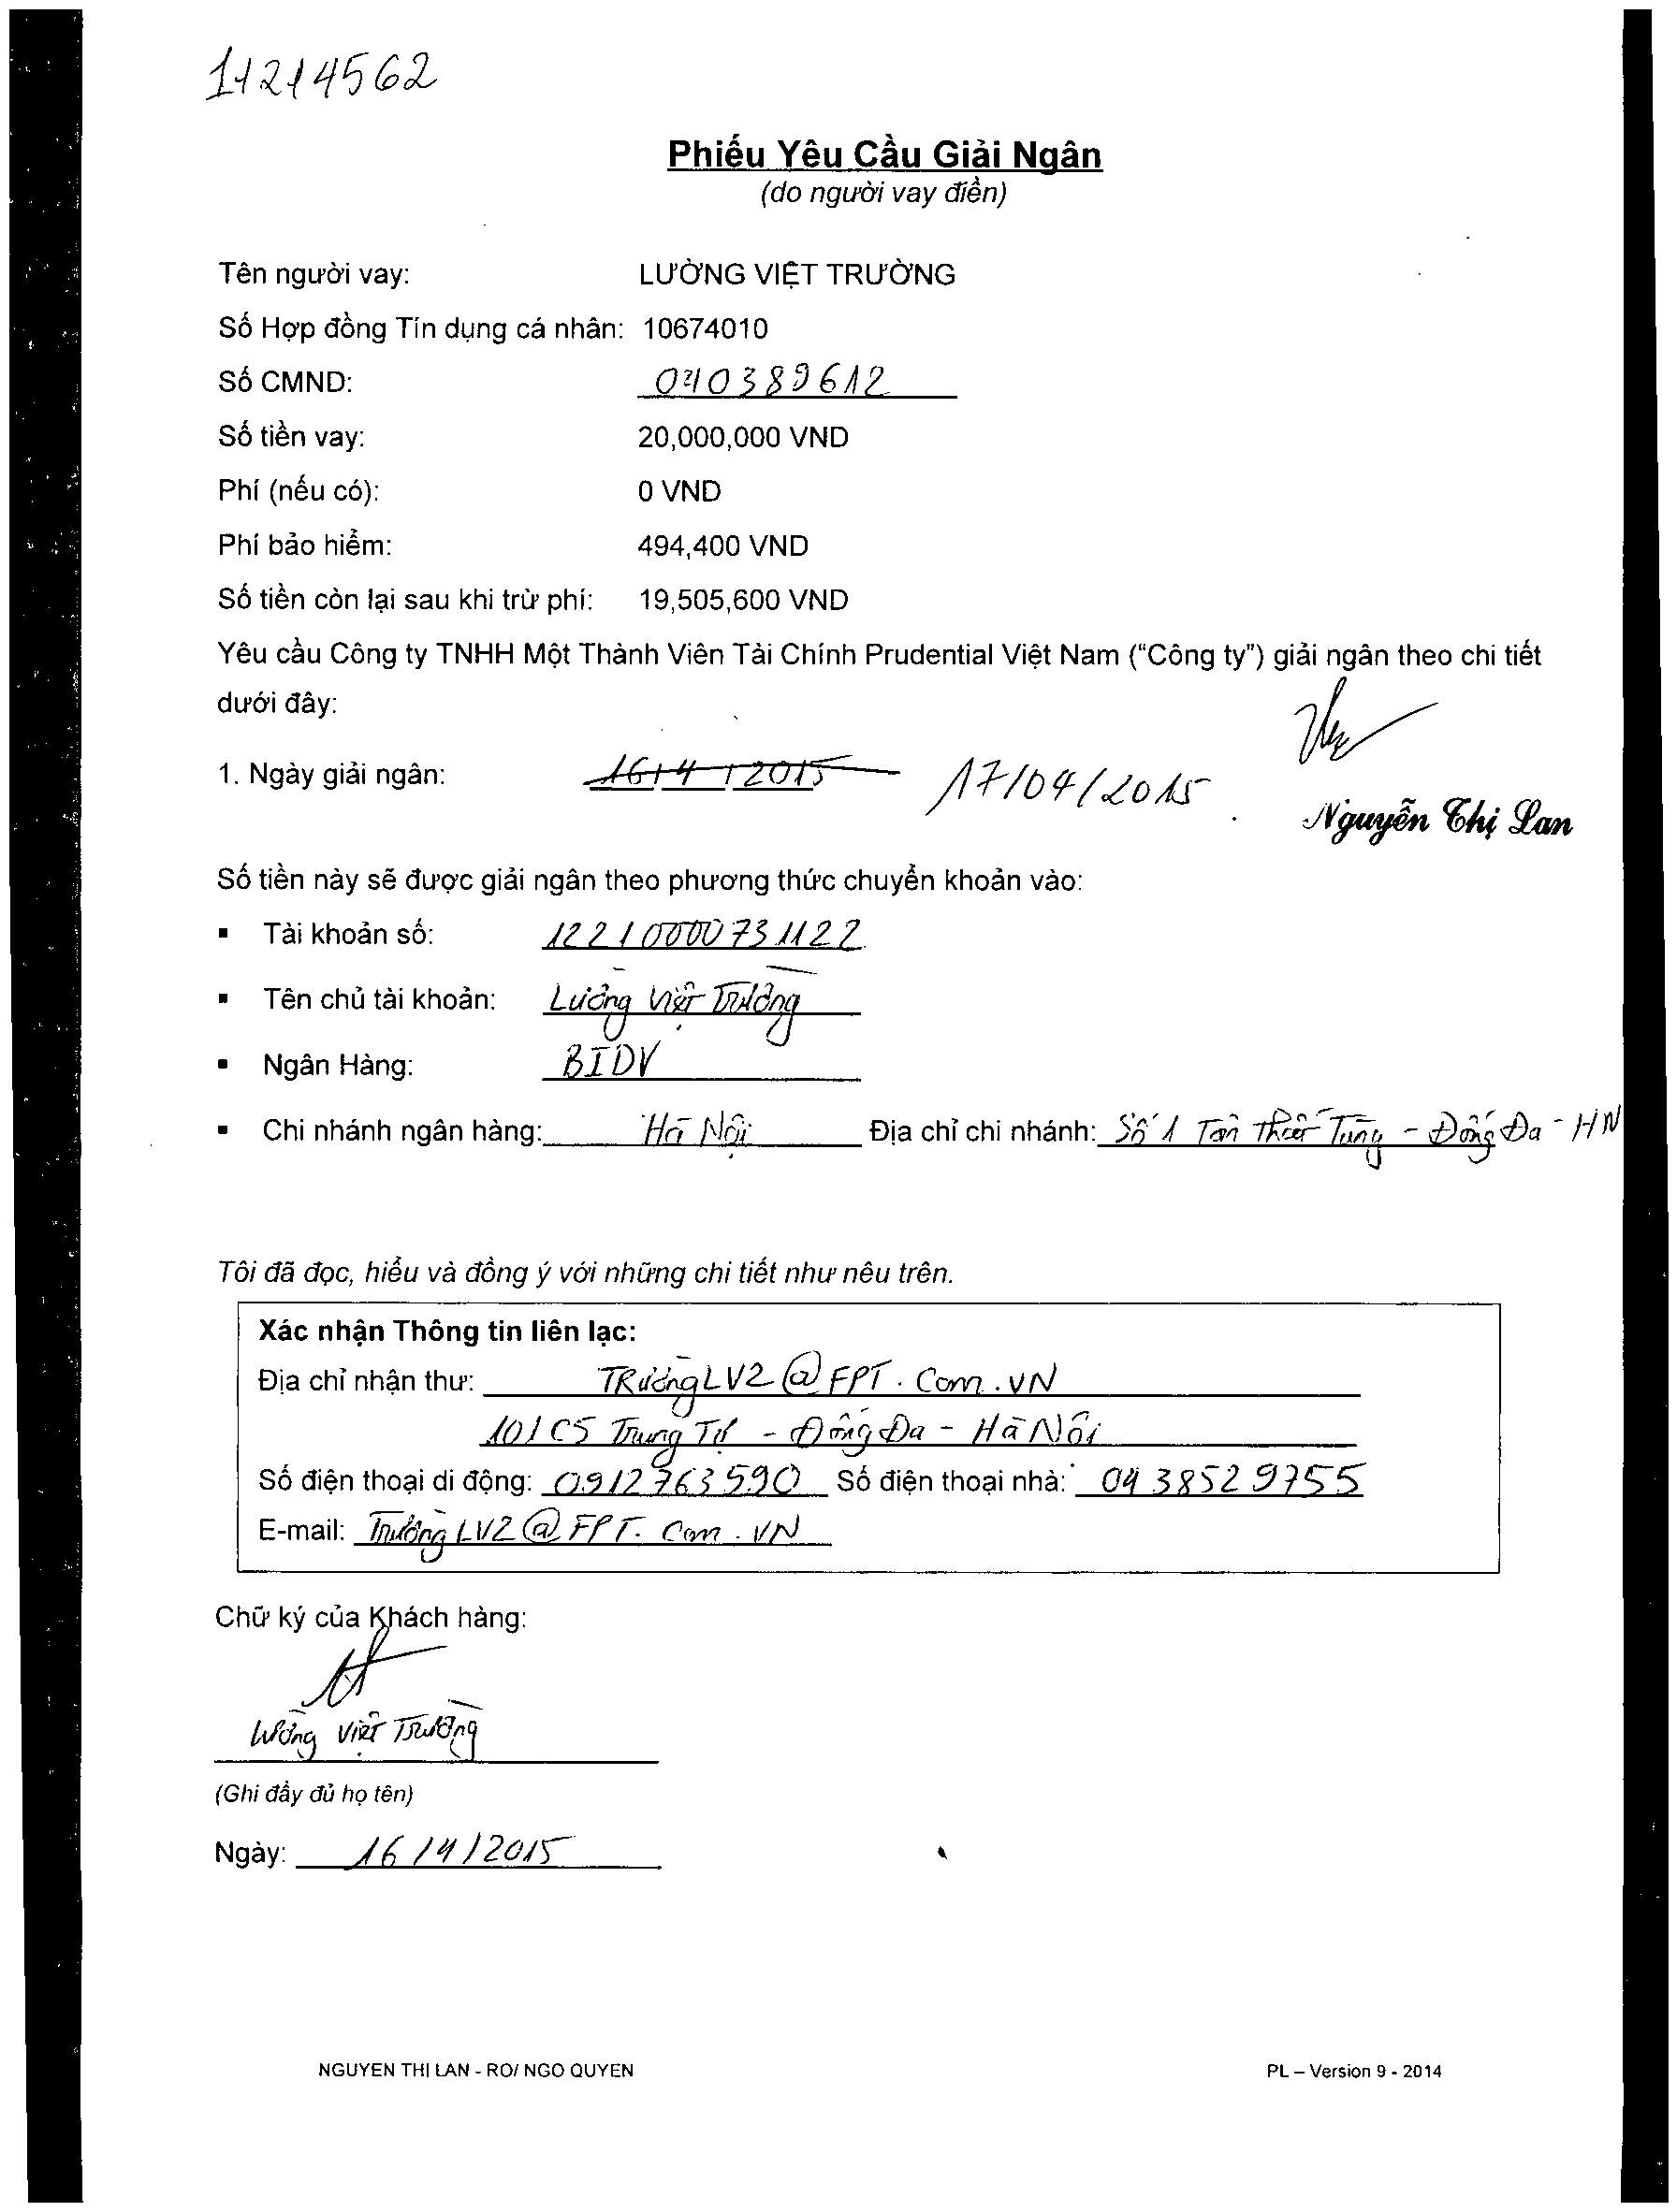 11214562
Phiếu Yêu Cầu Giải Ngân
(do người vay điền)
Tên người vay: LƯỜNG VIỆT TRƯỜNG
Số Hợp đồng Tín dụng cá nhân: 10674010
Số CMND: 040389612
Số tiền vay: 20,000,000 VND
Phí (nếu có): 0 VND
Phí bảo hiểm: 494,400 VND
Số tiền còn lại sau khi trừ phí: 19,505,600 VND
Yêu cầu Công ty TNHH Một Thành Viên Tài Chính Prudential Việt Nam (“Công ty”) giải ngân theo chi tiết
dưới đây:
1. Ngày giải ngân: 16/4/2015 17/04/2015
Nguyễn Thị Lan
Số tiền này sẽ được giải ngân theo phương thức chuyển khoản vào:
▪ Tài khoản số: 12210000731122
▪ Tên chủ tài khoản: Lường Việt Trường
▪ Ngân Hàng: BIDV
▪ Chi nhánh ngân hàng: Hà Nội Địa chỉ chi nhánh: Số 1 Tôn Thất Tùng - Đống Đa - HN
Tôi đã đọc, hiểu và đồng ý với những chi tiết như nêu trên.
Xác nhận Thông tin liên lạc:
Địa chỉ nhận thư: TRườngLV2@FPT.Com.VN
101 C5 Trung Tự - Đống Đa - Hà Nội
Số điện thoại di động: 0912763590 Số điện thoại nhà: 04 38529755
E-mail: TrườngLV2@FPT.Com.VN
Chữ ký của Khách hàng:
Lường Việt Trường
(Ghi đầy đủ họ tên)
Ngày: 16/4/2015
NGUYEN THI LAN - RO/ NGO QUYEN PL – Version 9 - 2014